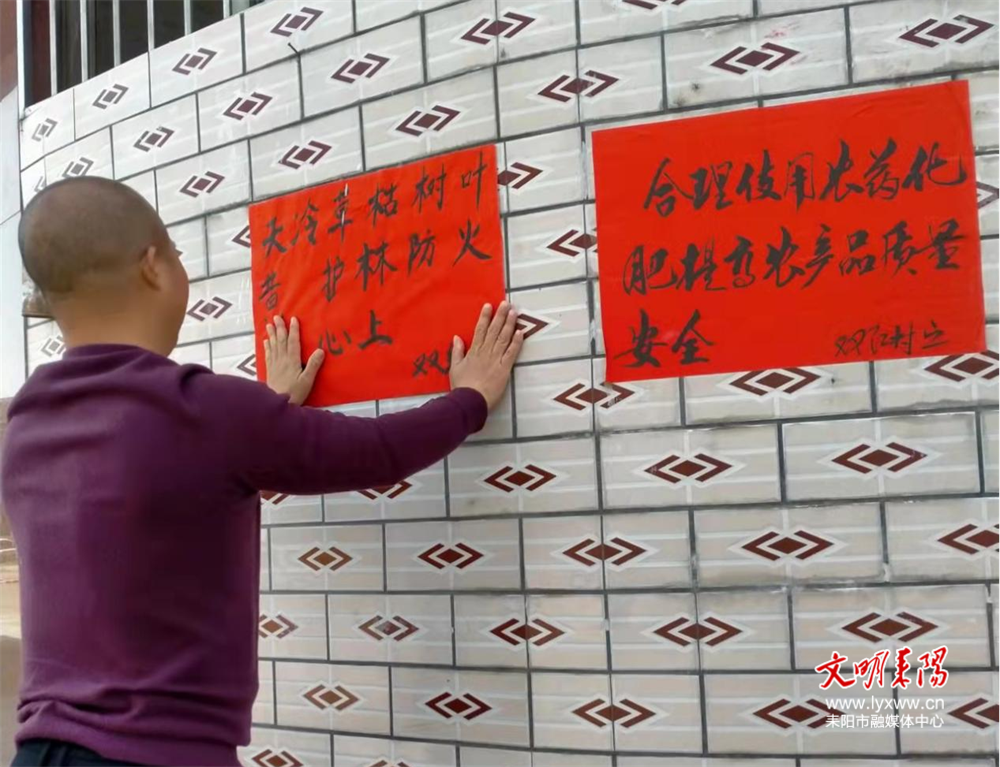 天冷草枯树叶
昔 护林防火
心上
双
合理使用农药化
肥提高农产品质量
安全
双江村宣
文明耒阳
www.lyxww.cn
耒阳市融媒体中心